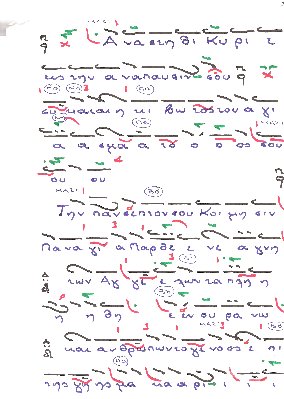 Α να στη θι Κυ ρι ε
εις την α να παυ σιν σου
συ και αι η κι βω τος του α γι
α α σμα α το ο ο ος σου
ου ου
Την παν σε πτον σου Κοι μη σιν
Πα να γι α Παρ θε ε νε α γνη
των Αγ γε ε λων τα πλη η
η η θη εν ου ρα νω
και αν θρω πων το γε νος ε πι
της γης μα κα α ρι ι ι ι